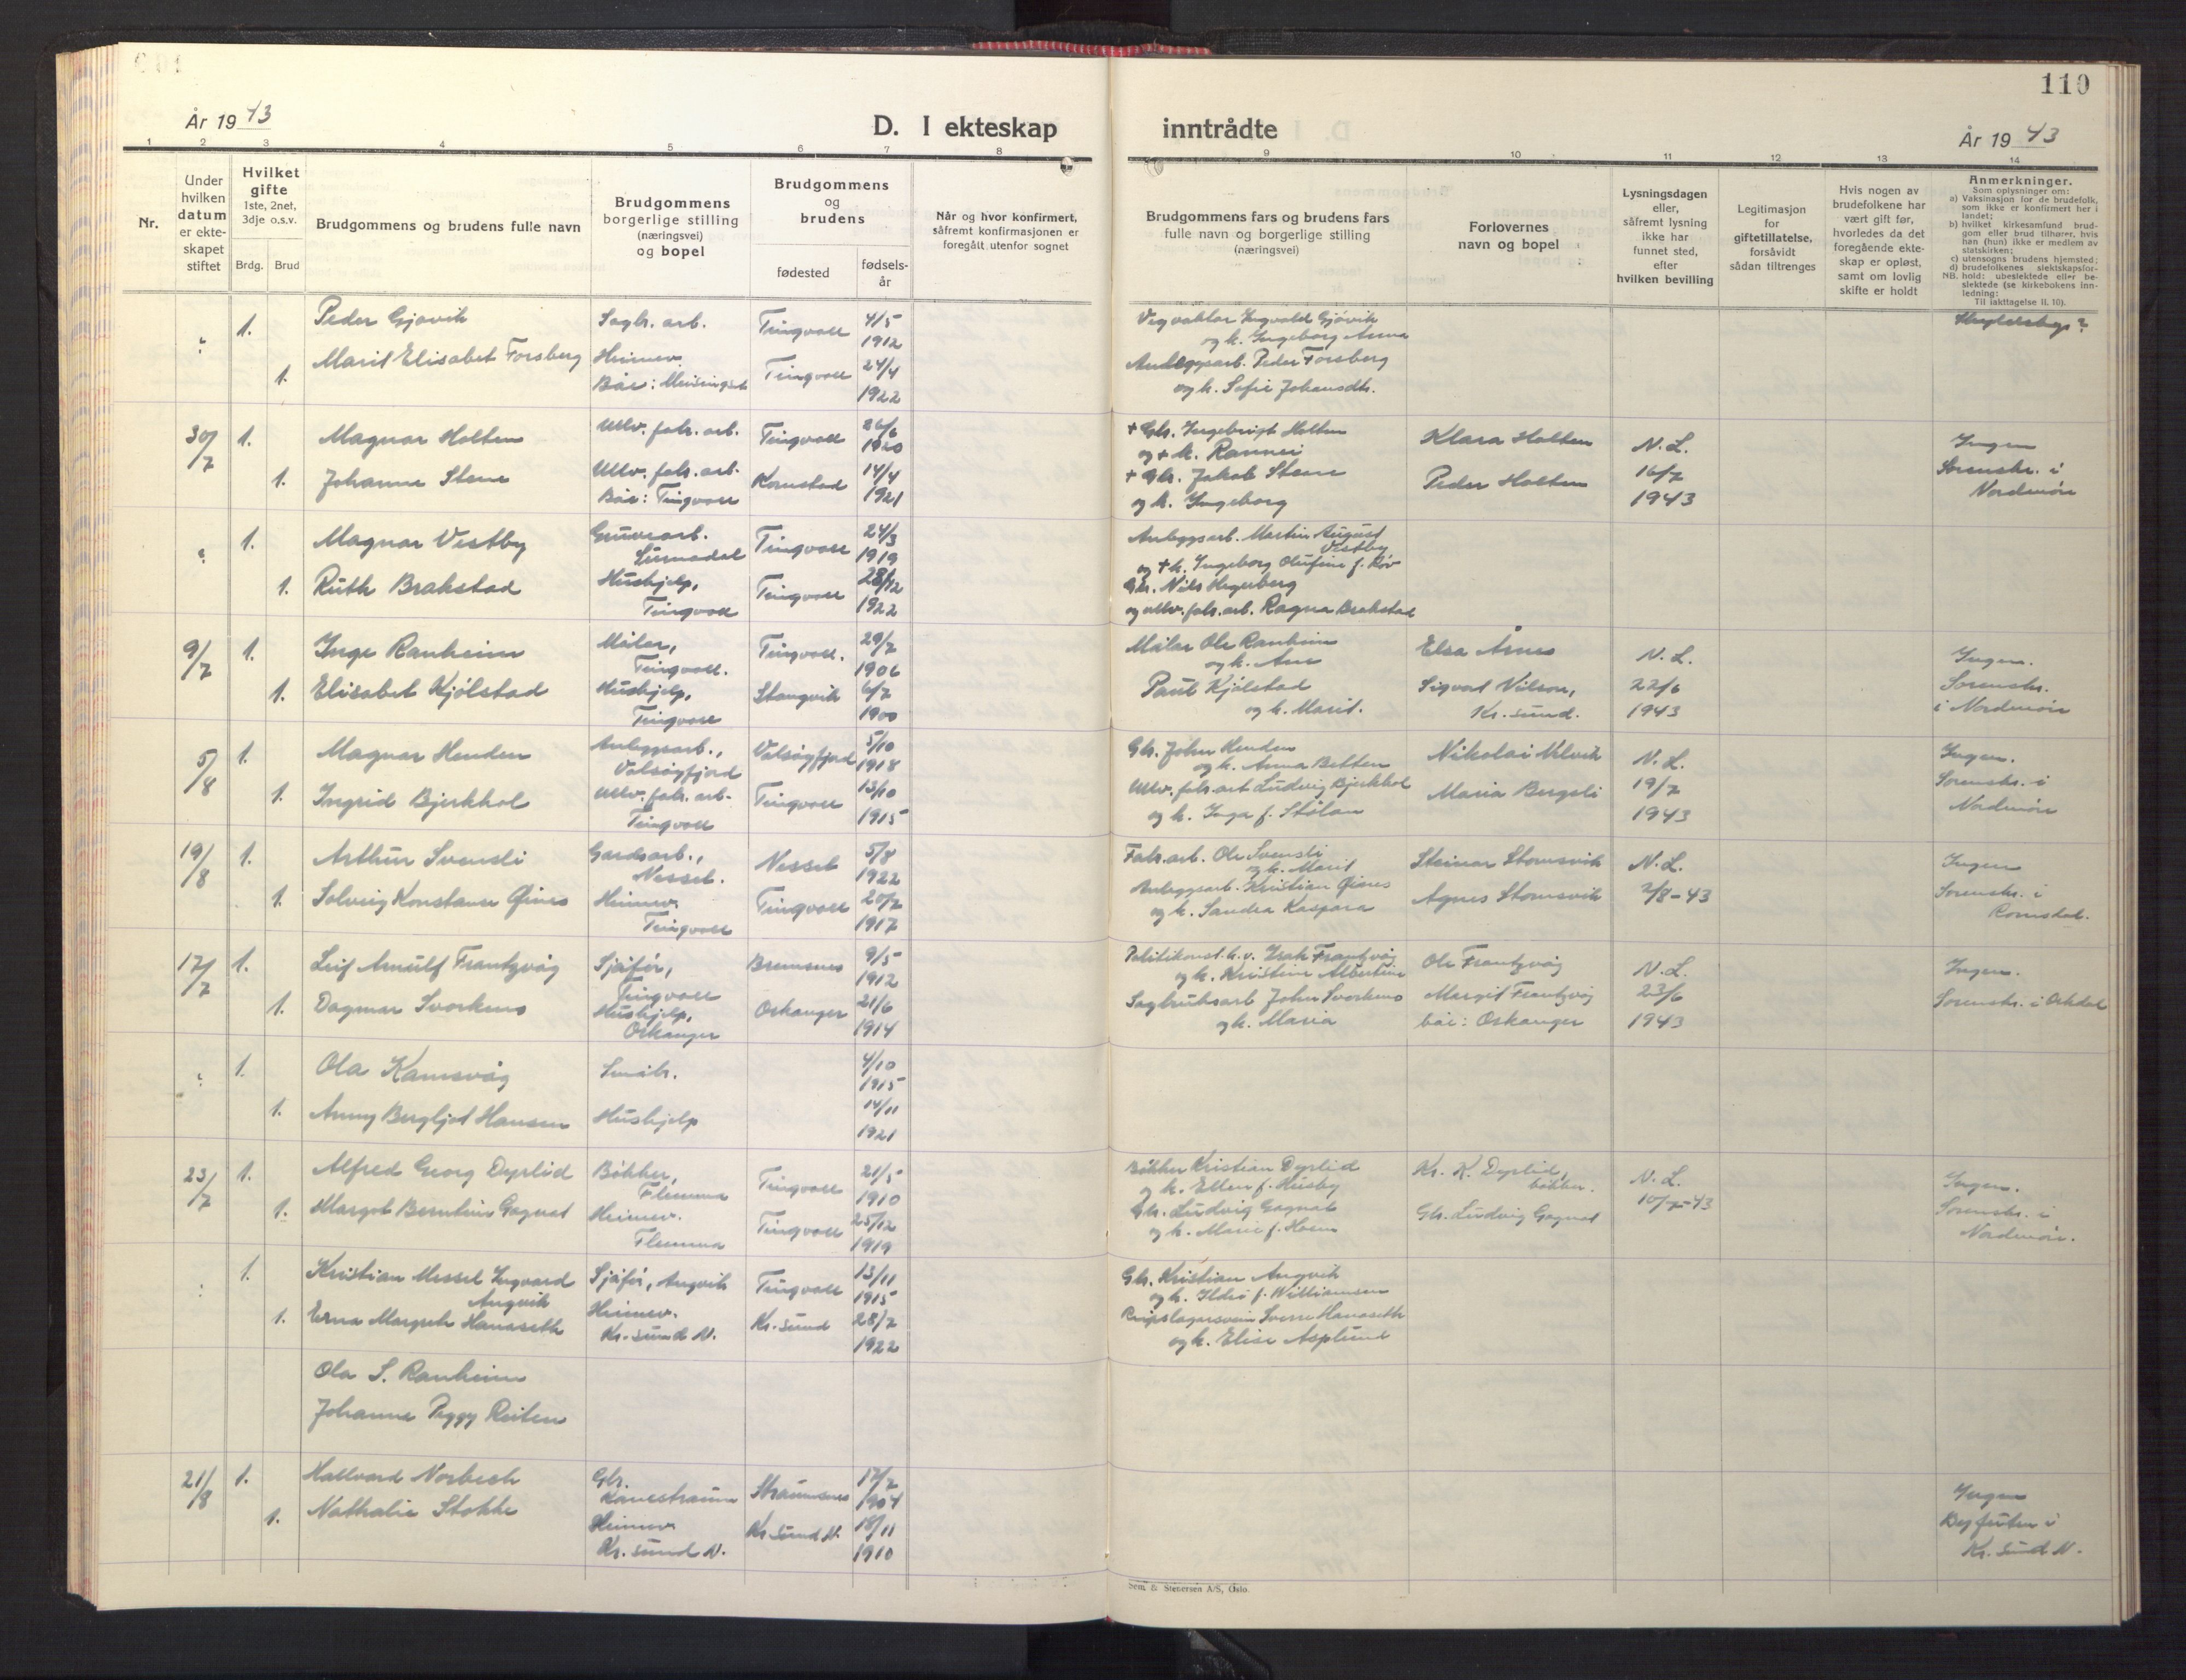 År 1943
D. I ekteskap
1 2 3 4 5 6 7 8
Nr.
Under hvilken datum er ekte-skapet stiftet
Hvilket gifte 1ste, 2net, 3dje o.s.v.
Brdg. Brud
Brudgommens og brudens fulle navn
Brudgommens borgerlige stilling (næringsvei) og bopel
Brudgommens og brudens
fødested
fødsels-år
Når og hvor konfirmert, såfremt konfirmasjonen er foregått utenfor sognet
inntrådte
110
År 1943
9 10 11 12 13 14
Brudgommens fars og brudens fars fulle navn og borgerlige stilling (næringsvei)
Forlovernes navn og bopel
Lysningsdagen eller, såfremt lysning ikke har funnet sted, efter hvilken bevilling
Legitimasjon for giftetillatelse, forsåvidt sådan tiltrenges
Hvis nogen av brudefolkene har vært gift før, hvorledes da det foregående ekte-skap er opløst, samt om lovlig skifte er holdt
Anmerkninger.
Som oplysninger om:
a) Vaksinasjon for de brudefolk, som ikke er konfirmert her i landet;
b) hvilket kirkesamfund brud-gom eller brud tilhører, hvis han (hun) ikke er medlem av statskirken;
c) utensogns brudens hjemsted;
d) brudefolkenes slektskapsfor-hold: ubeslektede eller be-slektede (se kirkebokens inn-ledning:
NB. Til iakttagelse II. 10).
? 1. Peder Gjøvik Sagbr. arb. Tingvoll 4/5 1912
Vegvaktar Ingvald Gjøvik
og k. Ingeborg Anna
1. Marit Elisabet Forsberg Heimev. Båe: Meisingset Tingvoll 24/4 1922
Anleggsarb. Peder Forsberg
og k. Sofie Johansdtr.
30/7 1. Magnar Holten Ullv. fabr. arb. Tingvoll 26/6 1920
+ Gbr. Ingebrigt Holten
og + k. Rannei
Klara Holten N.L. Ingen
1. Johanne Stene Ullv. fabr. arb. Båe: Tingvoll Kornstad 14/4 1921
+ Gbr. Jakob Stene
og k. Ingeborg
Peder Holten 16/7 1943 Sorenskr. i Nordmøre
? 1. Magnar Vestby Gruvearb. Surnadal Tingvoll 24/3 1919
Anleggsarb. Martin August Vestby
og + k. Ingeborg Olufine f. Røv
1. Ruth Brakstad Hushjelp, Tingvoll Tingvoll 28/12 1922
Gbr. Nils Hegerberg
og ullv. fabr. arb. Ragna Brakstad
9/7 1. Inge Ranheim Målar, Tingvoll. Tingvoll. 29/7 1906
Målar Ole Ranheim
og k. Ane
Elsa Årnes N.L. Ingen.
1. Elisabet Kjølstad Hushjelp, Tingvoll Stangvik 6/7 1900
Paul Kjølstad
og k. Marit.
Sigvat Nilsen, Kr. sund. 22/6 1943 Sorenskr. i Nordmøre
5/8 1. Magnar Henden Anleggsarb., Valsøyfjord Valsøyfjord 5/10 1918
Gbr. John Henden
og k. Anna Betten
Nikolai Ulvik N.L. Ingen.
1. Ingrid Bjerkhol Ullv. fabr. arb. Tingvoll Tingvoll 13/10 1915
Ullv. fabr. arb Ludvig Bjerkhol
og k. Inga f. Stølan
Maria Bergsli 19/7 1943 Sorenskr. i Nordmøre
19/8 1. Arthur Svensli Gardsarb., Nesset. Nesset 5/8 1922
Fabr. arb. Ole Svensli
og k. Marit
Steinar Stomsvik N.L. Ingen
1. Solveig Konstanse Gines Heimev. Tingvoll Tingvoll 20/7 1917
Anleggsarb. Kristian Gines
og k. Sandra Kaspara
Agnes Stomsvik 2/8-43 Sorenskr. i Romsdal.
17/7 1. Leif Arnulf Frantzvåg Sjåfør, Tingvoll Bremsnes 9/5 1912
Politikonst. h.v. Isak Frantzvåg
og k. Kristine Albertine
Ole Frantzvåg N.L. Ingen.
1. Dagmar Svorkens Hushjelp, Orkanger Orkanger 21/6 1914
Sagbruksarb John Svorkens
og k. Maria
Margit Frantzvåg båe: Orkanger 23/6 1943 Sorenskr. i Orkdal
? 1. Ola Kamsvåg Småbr. 4/10 1915
1. Anny Bergljot Hansen Hushjelp 14/11 1921
23/7 1. Alfred Georg Dyrlid Bøkker, Flemma Tingvoll 21/5 1910
Bøkker Kristian Dyrlid
og k. Ellen f. Husby
Kr. K. Dyrlid, bøkker. N.L. Ingen.
1. Margot Berntine Gagnat Heimev. Flemma Tingvoll 25/12 1919
Gbr. Ludvig Gagnat
og k. Marie f. Hoem
Gbr. Ludvig Gagnat 10/7-43 Sorenskr. i Nordmøre.
1. Kristian Messel Ingvard Angvik Sjåfør, Angvik Tingvoll 13/11 1915
Gbr. Kristian Angvik
og k. Ildri f. Williamsen
1. Erna Margreth Hanaseth Heimev. Kr. sund N. Kr. sund 28/7 1922
Sverre Hanaseth
og k. Elise Asplund
Ola S. Ranheim
Johanna Peggy Reiten
21/8 1. Hallvard Norbech Gbr. Kanestraum Straumsnes 17/7 1904
Ingen
1. Nathalie Stokke Heimev. Kr. sund N. Kr. sund N. 18/11 1910
Byfuten i Kr. sund N.
Sem & Stenersen A/S, Oslo.